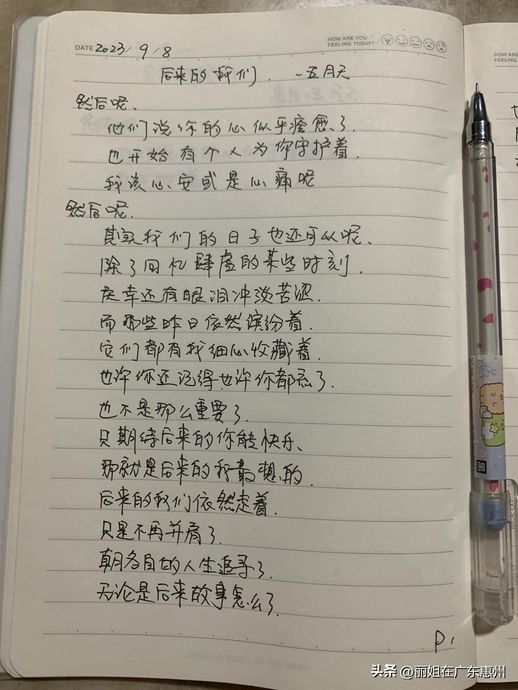 DATE 2023/9/8
HOW ARE YOU
FEELING TODAY?
后来的我们. —五月天
然后呢.
他们说你的心似乎痊愈了.
也开始有个人为你守护着.
我该心安或是心痛呢
然后呢.
其实我们的日子也还可以呢.
除了回忆肆虐的某些时刻.
庆幸还有眼泪冲淡苦涩.
而那些昨日依然缤纷着.
它们都有我细心收藏着.
也许你还记得也许你都忘了.
也不是那么重要了.
只期待后来的你能快乐.
那就是后来的我最想的.
后来的我们依然走着.
只是不再并肩了.
朝各自的人生追寻了.
无论是后来故事怎么了.
P1
头条 @丽姐在广东惠州